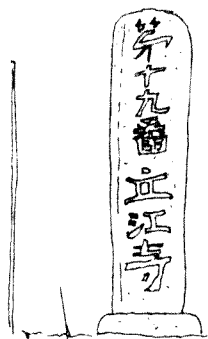 第十九番立江寺